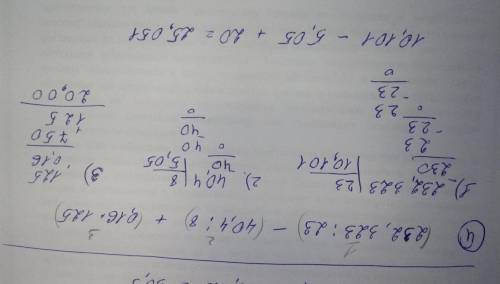 1 2 3
④ (232,323 : 23) − (40,4 : 8) + (0,16 · 125)
1) 232,323 | 23
230 | 10,101
23
-23
0
23
-23
0
2) 40,4 | 8
40 | 5,05
0
40
40
0
3) 125
0,16
750
125
20,00
10,101 − 5,05 + 20 = 25,051